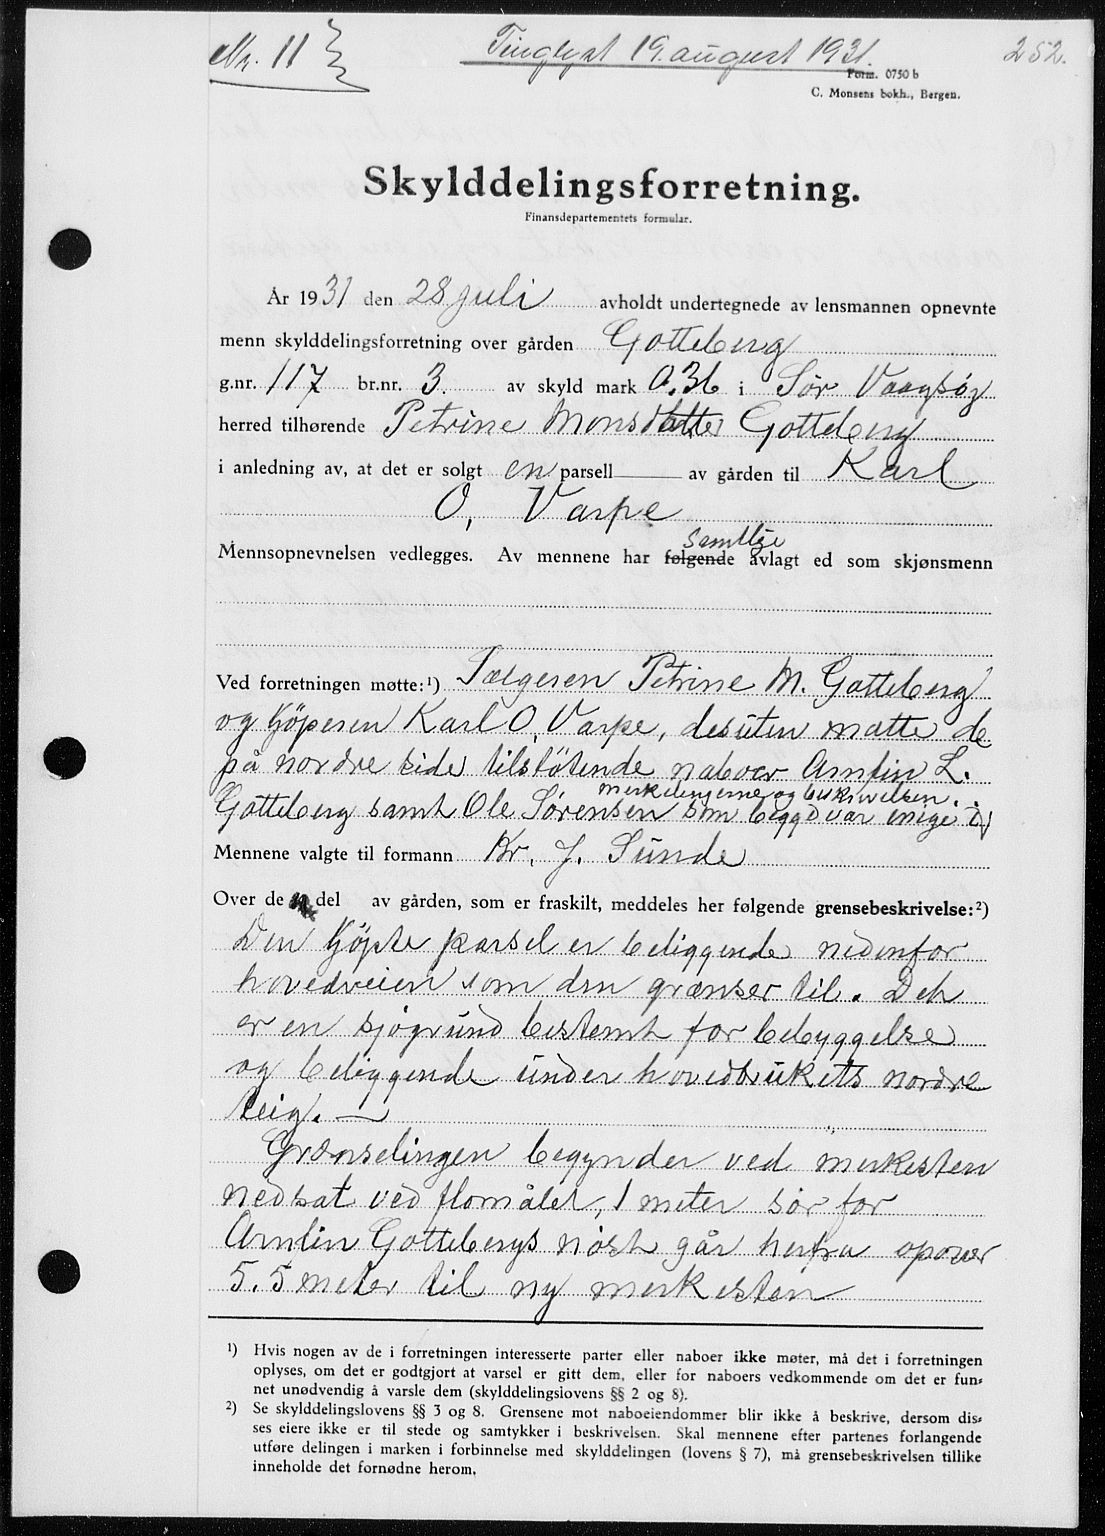 Nr. 11
Tinglyst 19. august 1931.
252.
Form. 0750 b
C. Monsens bokh., Bergen.
Skylddelingsforretning.
Finansdepartementets formular.
År 1931 den 28 juli avholdt undertegnede av lensmannen opnevnte
menn skylddelingsforretning over gården Gotteberg
g.nr. 117 br.nr. 3. av skyld mark 0.36 i Sør Vaagsøy
herred tilhørende Petrine Monsdatter Gotteberg
i anledning av, at det er solgt en parsell av gården til Karl
O, Varpe
samtlige
Mennsopnevnelsen vedlegges. Av mennene har følgende avlagt ed som skjønsmenn
Ved forretningen møtte:¹) Sælgeren Petrine M. Gotteberg
og kjöperen Karl O, Varpe, desuten møtte de
på nordre side tilstötende naboer Arntin L.
merkelingerne og beskrivelsen.
Gotteberg samt Ole Sørensen som begge var enige i
Mennene valgte til formann Kr. J. Sunde
Over den del av gården, som er fraskilt, meddeles her følgende grensebeskrivelse:²)
Den kjöpte parsel er beliggende nedenfor
hovedveien som den grænser til. Det
er en sjögrund bestemt for bebyggelse
og beliggende under hovedbrukets nordre
teig.
Grænselingen begynder ved merkesten
nedsat ved flomålet, 1 meter sör for
Arntin Gottebergs nöst går herfra opover
5.5 meter til ny merkesten
¹) Hvis nogen av de i forretningen interesserte parter eller naboer ikke møter, må det i forretningen
oplyses, om det er godtgjort at varsel er gitt dem, eller for naboers vedkommende om det er fun-
net unødvendig å varsle dem (skylddelingslovens §§ 2 og 8).
²) Se skylddelingslovens §§ 3 og 8. Grensene mot naboeiendommer blir ikke å beskrive, dersom dis-
ses eiere ikke er til stede og samtykker i beskrivelsen. Skal mennene efter partenes forlangende
utføre delingen i marken i forbinnelse med skylddelingen (lovens § 7), må grensebeskrivelsen tillike
inneholde det fornødne herom.